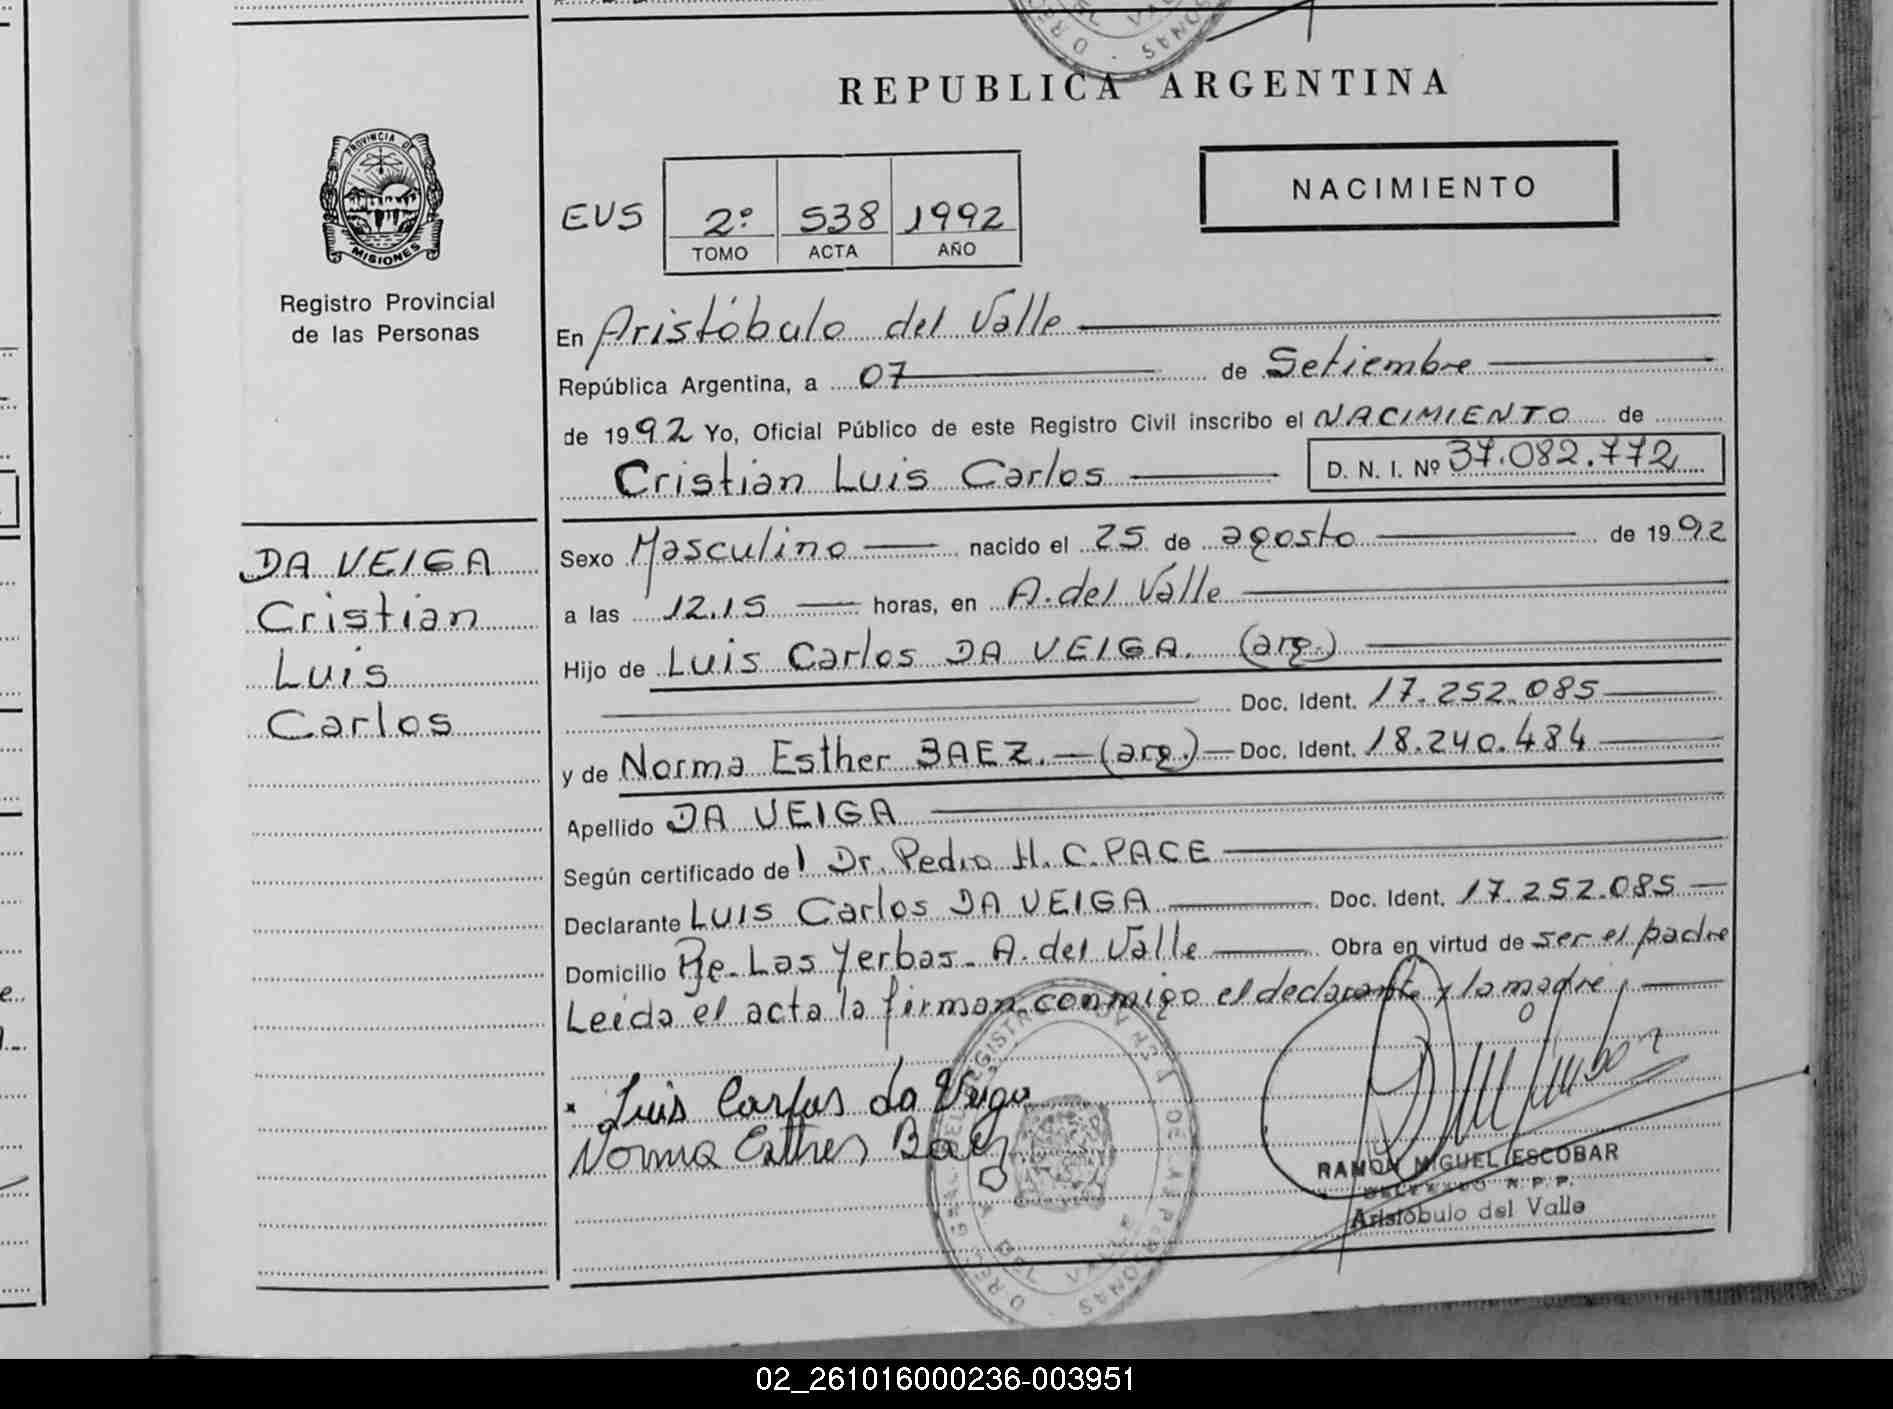 REPUBLICA ARGENTINA
PROVINCIA DE
MISIONES
Registro Provincial
de las Personas
EUS 2º 538 1992
TOMO ACTA AÑO
NACIMIENTO
En Aristóbulo del Valle
República Argentina, a 07 de Setiembre
de 1992 Yo, Oficial Público de este Registro Civil inscribo el NACIMIENTO de
Cristian Luis Carlos D. N. I. Nº 37.082.772
DA VEIGA
Cristian
Luis
Carlos
Sexo Masculino nacido el 25 de agosto de 1992
a las 12.15 horas, en A. del Valle
Hijo de Luis Carlos DA VEIGA. (arg.)
Doc. Ident. 17.252.085
y de Norma Esther BAEZ. (arg.) Doc. Ident. 18.240.484
Apellido DA VEIGA
Según certificado del Dr. Pedro H. C. PACE
Declarante Luis Carlos DA VEIGA Doc. Ident. 17.252.085
Domicilio Pje. Las Yerbas. A. del Valle Obra en virtud de ser el padre
Leida el acta la firman conmigo el declarante y la madre
Luis Carlos da Veiga
Norma Esther Baez
RAMON MIGUEL ESCOBAR
R.P.P.
Aristóbulo del Valle
02_261016000236-003951